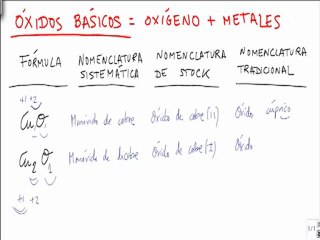 ÓXIDOS BÁSICOS = OXÍGENO + METALES
FÓRMULA NOMENCLATURA SISTEMÁTICA NOMENCLATURA DE STOCK NOMENCLATURA TRADICIONAL
+1 +2
Cu O1 Monóxido de cobre Óxido de cobre (II) Óxido cúprico
Cu2 O1 Monóxido de dicobre Óxido de cobre (I) Óxido
+1 +2